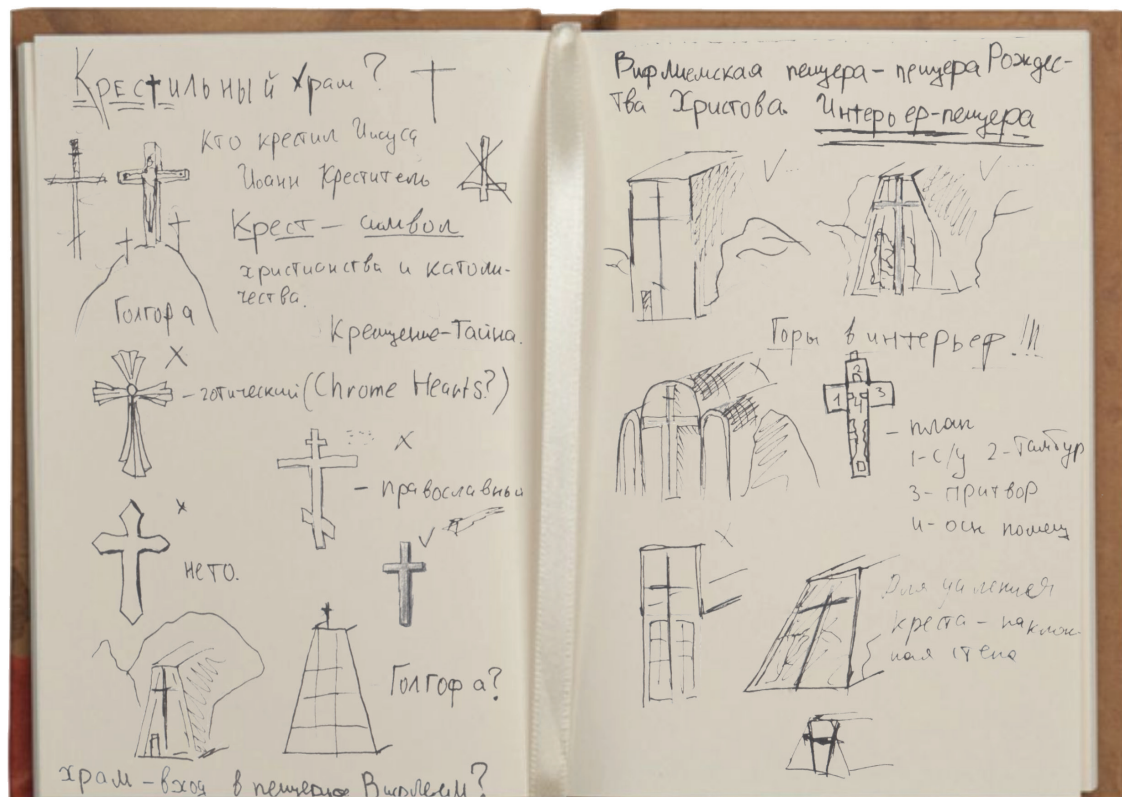 Крестильный храм?
Кто крестил Иисуса
Иоанн Креститель
Крест – символ
христианства и католи-
чества.
Голгофа
Крещение-Тайна.
– готический (Chrome Hearts?)
– православный
не то.
Голгофа?
храм – вход в пещерное Вифлеем?
Вифлиемская пещера – пещера Рождес-
тва Христова. Интерьер-пещера
Горы в интерьер!!!
2
1 4 3
– план
1-с/у 2-Тамбур
3- притвор
4- осн помещ
Для
креста – наклон-
ная стена